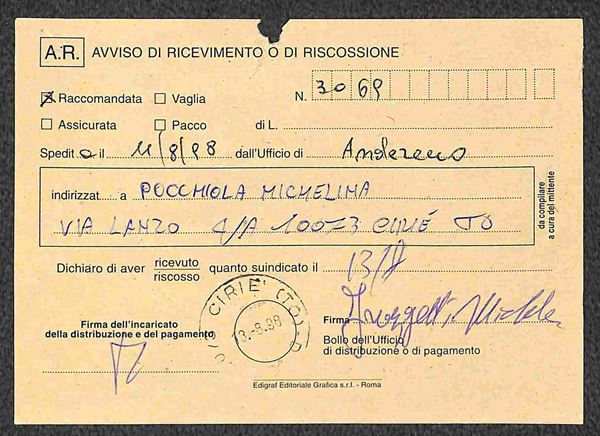 A.R. AVVISO DI RICEVIMENTO O DI RISCOSSIONE
Raccomandata Vaglia N. 3069
Assicurata Pacco di L.
Spedit o il 11/8/98 dall'Ufficio di
indirizzat a POCCHIOLA MICHELINA
VIA LANZO 4/A 10073 CIRIÉ TO
da compilare
a cura del mittente
Dichiaro di aver ricevuto riscosso quanto suindicato il 13/8
CIRIE' (TO)
13.-8.98
Firma dell'incaricato
della distribuzione e del pagamento
Firma
Bollo dell'Ufficio
di distribuzione o di pagamento
Edigraf Editoriale Grafica s.r.l. - Roma